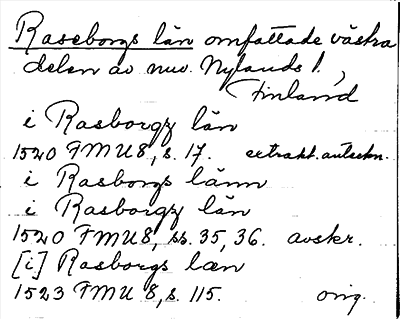 Raseborgs län omfattade västra
delen av nuv. Nylands l.,
Finland
i Rasborgz län
1520 FMU 8, s. 17. extrakt.autentn.
i Rasborgs länn
i Rasborgz län
1520 FMU 8, ss. 35, 36. avskr.
[i] Rasborgs læn
1523 FMU 8, s. 115. orig.